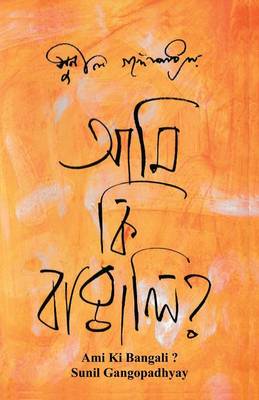 সুনীল গঙ্গোপাধ্যায়
আমি
কি
বাঙালি?
Ami Ki Bangali ?
Sunil Gangopadhyay